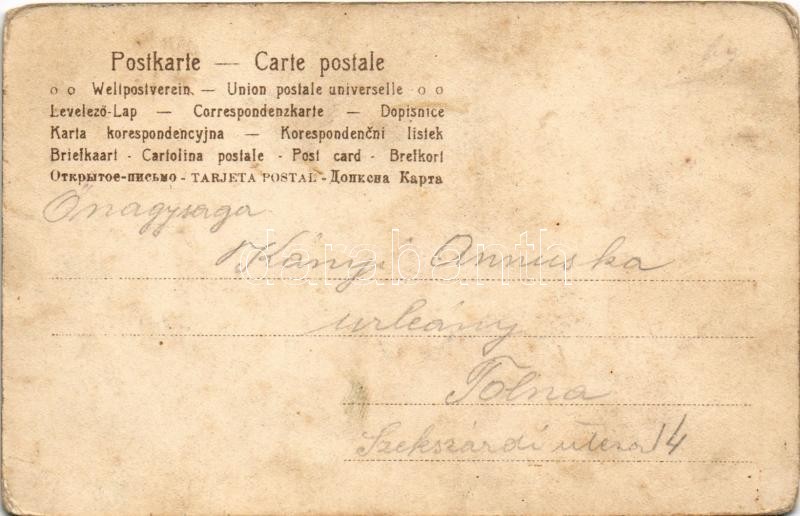 Postkarte — Carte postale
o o Weltpostverein. — Union postale universelle o o
Levelező-Lap — Correspondenzkarte — Dopisnice
Karta korespondencyjna — Korespondenčni listek
Briefkaart - Cartolina postale - Post card - Brefkort
Открытое-письмо - TARJETA POSTAL - Допксна Карта
Őnagysaga
Kányi Annuska
urleány
Tolna
Szekszárdi utcza 14
darabanth